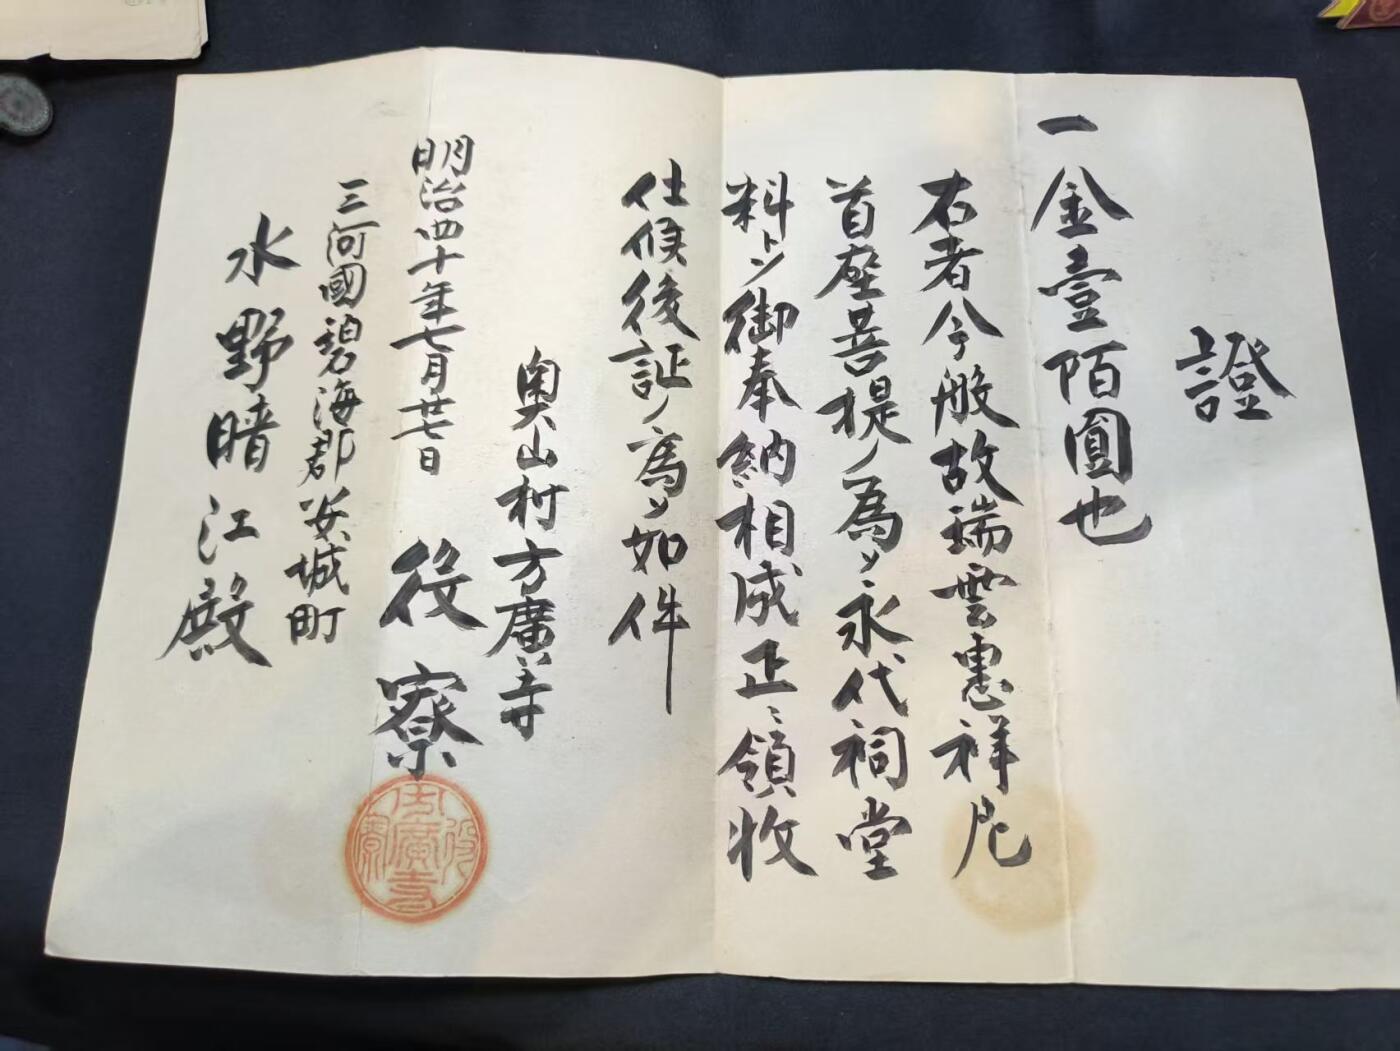 證
一金壹陌圓也
右者今般故瑞雲惠祥尼
首座菩提ノ為メニ永代祠堂
料トシ御奉納相成正ニ領收
仕候後証ノ為メ如件
奥山村方廣寺
役寮
明治四十年七月廿七日
三河國碧海郡安城町
水野暗江殿
方廣寺
役寮